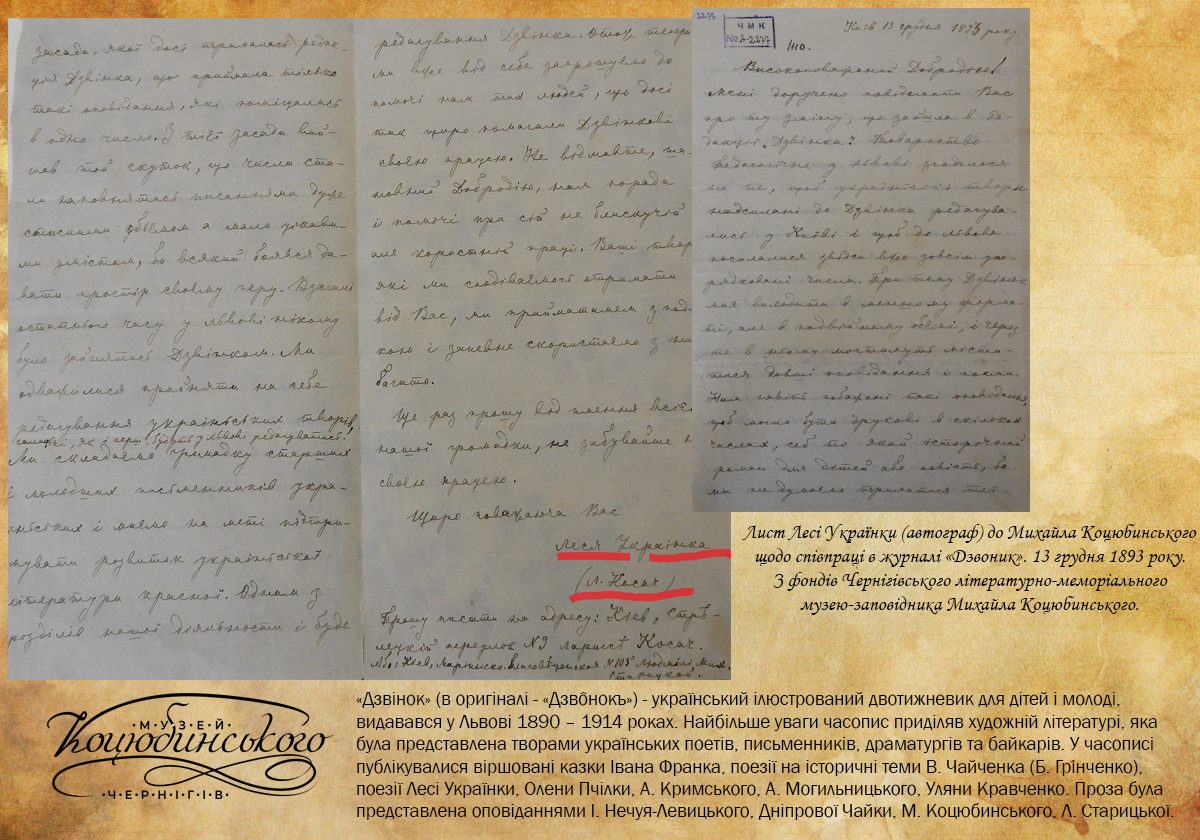 2277
Ч М К
№ А-2277
Київ 13 грудня 1893 року.
Високоповажаний Добродію!
Мені доручено повідомити Вас
про ту зміну, що зайшла в Ре-
дакції „Дзвінка“. Товариство
Педагогічне у Львові згодилося
на те, щоб українські твори
надсилані до Дзвінка редагува-
лись у Київі і щоб до Львова
посилалися звідси вже зовсім упо-
рядковані числа. При тому Дзвінок
має виходити в меншому форма-
ті, але в подвійному обємі, і через
те в ньому могтимуть місти-
тися довші оповідання і поеми.
Нам навіть побажані такі оповідання,
щоб могли бути друковані в скількох
числах, себ то який історичний
роман для дітей або повість, бо
ми не думаємо триматися тієї
засади, якої досі трималась редак-
ція Дзвінка, що приймала тілько
такі оповідання, які поміщались
в одно число. З тієї засади вий-
шов той скуток, що числа ста-
ли наповнятись писаннями дуже
стислими обємом а мало цікави-
ми змістом, бо всякий боявся да-
вати простір своєму перу. Взагалі
остатнього часу у Львові нікому
було займатися Дзвінком. Ми
одважилися прийняти на себе
редагування українських творів,
будуть у Львові редагуватись.
Ми складаємо громадку старших
і молодших письменників укра-
їнських і маємо на меті підтри-
мувати розвиток української
літератури красної. Одним з
розділів нашої діяльности і буде
редагування Дзвінка. Отож тепер
ми вже від себе запрошуємо до
помочі нам тих людей, що досі
так щиро помагали Дзвінкові
своєю працею. Не відмовте, ша-
новний Добродію, нам поради
і помочі при сій не блискучій
але користній праці. Ваші твори
які ми сподіваємось отримати
від Вас, ми прийматимем з подя-
кою і запевне скористаємо з них
багато.
Ще раз прошу від імення всієї
нашої громадки, не забувайте нас
своєю працею.
Щиро поважаюча Вас
Леся Українка
(Л. Косач)
Прошу писати на адресу: Кіев, Стрѣ-
лецкій переулок N 9 Ларисѣ Косач.
Або: Кіев, Маріинско-Благовѣщенская N 105 Людмилі Мих.
Старицкой.
Лист Лесі Українки (автограф) до Михайла Коцюбинського
щодо співпраці в журналі «Дзвоник». 13 грудня 1893 року.
З фондів Чернігівського літературно-меморіального
музею-заповідника Михайла Коцюбинського.
·МУЗЕЙ·
Коцюбинського
·ЧЕРНІГІВ·
«Дзвінок» (в оригіналі - «Дзвôнокъ») - український ілюстрований двотижневик для дітей і молоді,
видавався у Львові 1890 – 1914 роках. Найбільше уваги часопис приділяв художній літературі, яка
була представлена творами українських поетів, письменників, драматургів та байкарів. У часописі
публікувалися віршовані казки Івана Франка, поезії на історичні теми В. Чайченка (Б. Грінченко),
поезії Лесі Українки, Олени Пчілки, А. Кримського, А. Могильницького, Уляни Кравченко. Проза була
представлена оповіданнями І. Нечуя-Левицького, Дніпрової Чайки, М. Коцюбинського, Л. Старицької.